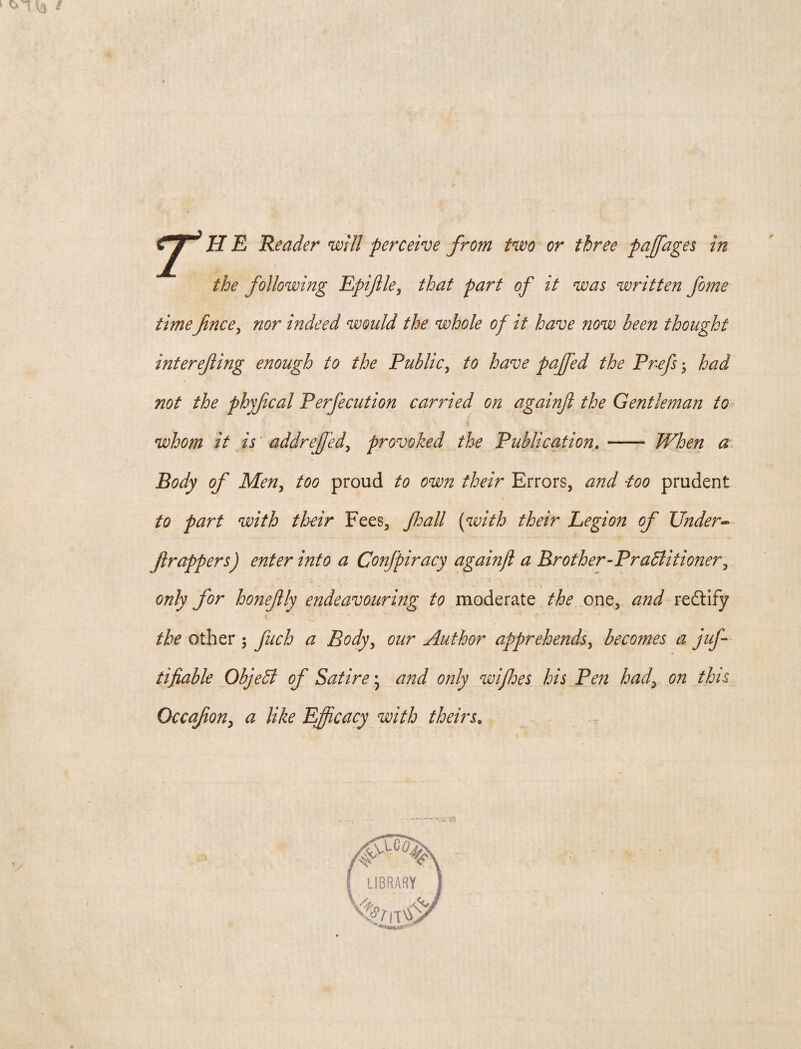 THE Reader will perceive from two or three paſſages in
the following Epiſtle, that part of it was written ſome
time ſince, nor indeed would the whole of it have now been thought
intereſting enough to the Public, to have paſſed the Preſs; had
not the phyſical Perſecution carried on againſt the Gentleman to
whom it is addreſſed, provoked the Publication. —— When a
Body of Men, too proud to own their Errors, and too prudent
to part with their Fees, ſhall (with their Legion of Under-
ſtrappers) enter into a Conſpiracy againſt a Brother-Practitioner,
only for honeſtly endeavouring to moderate the one, and rectify
the other; ſuch a Body, our Author apprehends, becomes a juſ-
tifiable Object of Satire; and only wiſhes his Pen had, on this
Occaſion, a like Efficacy with theirs.
WELLCOME
LIBRARY
INSTITUTE